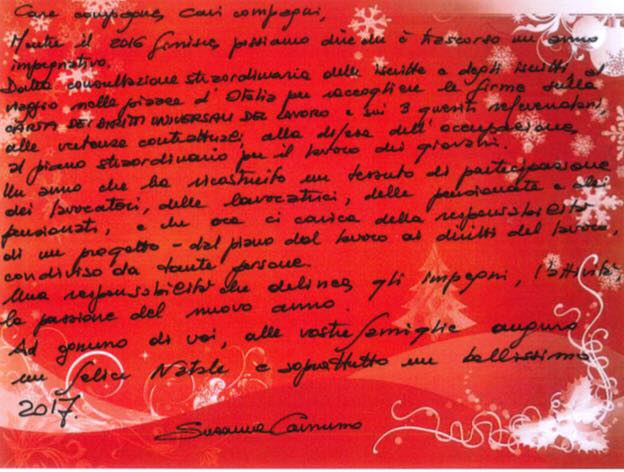 Care compagne, Cari compagni,
Mentre il 2016 finisce, possiamo dire che è trascorso un anno
impegnativo.
Dalla consultazione straordinaria delle iscritte e degli iscritti al
viaggio nelle piazze d'Italia per raccogliere le firme sulla
CARTA DEI DIRITTI UNIVERSALI DEL LAVORO e sui 3 quesiti referendari,
alle vertenze contrattuali, alla difesa dell'occupazione,
al piano straordinario per il lavoro dei giovani.
Un anno che ha ricostruito un tessuto di partecipazione
dei lavoratori, delle lavoratrici, delle pensionate e dei
pensionati, e che ora ci carica della responsabilità
di un progetto - dal piano del lavoro ai diritti del lavoro,
condiviso da tante persone.
Una responsabilità che delinea gli impegni, l'attività
la passione del nuovo anno.
Ad ognuno di voi, alle vostre famiglie auguro
un felice Natale e soprattutto un bellissimo
2017.
Susanna Camusso